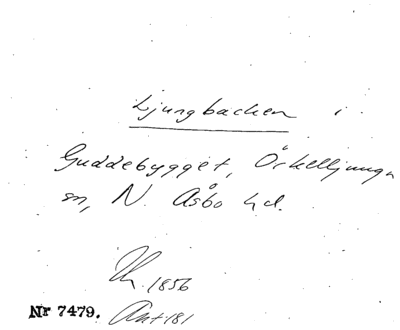 Ljungbacken i
Guddebygget, Örkelljunga
sn, N. Åsbo hd.
1856
Nr 7479.